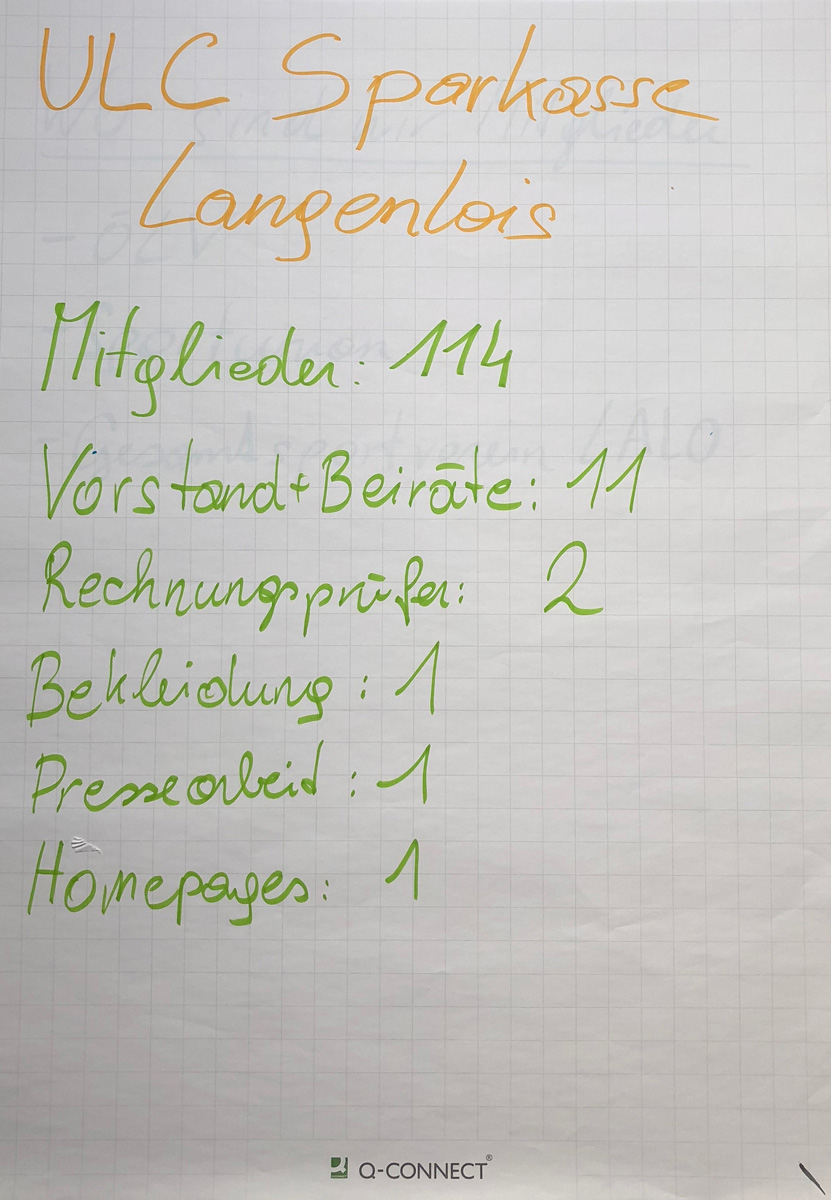 ULC Sparkasse
Langenlois
Mitglieder: 114
Vorstand + Beiräte: 11
Rechnungsprüfer: 2
Bekleidung: 1
Pressearbeid: 1
Homepages: 1
Q-CONNECT®